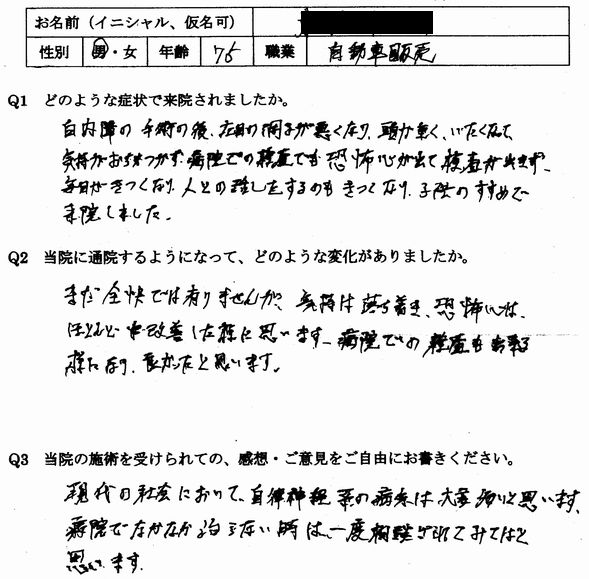 お名前（イニシャル、仮名可）
性別 男・女 年齢 75 職業 自動車販売
Q1 どのような症状で来院されましたか。
白内障の手術の後、左目の調子が悪くなり、頭が重く、いたくなって、
気持がおちつかず、病院での検査でも恐怖心が出て検査が出来ず、
毎日がきつくなり、人との話しをするのもきつくなり、子供のすすめで
来院しました。
Q2 当院に通院するようになって、どのような変化がありましたか。
まだ全快では有りませんが、気持は落ち着き、恐怖心は、
ほとんど改善した様に思います。病院での検査も出来る
様になり、良かったと思います。
Q3 当院の施術を受けられての、感想・ご意見をご自由にお書きください。
現代の社会において、自律神経系の病気は大変多いと思います。
病院でなかなか治らない時は、一度相談されてみてはと
思います。